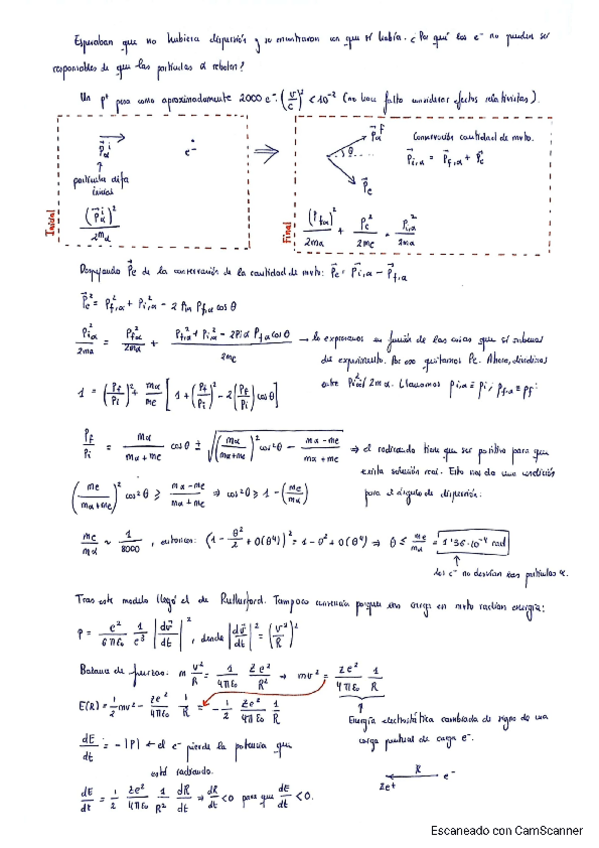 Esperaban que no hubiera dispersión y se encontraron con que sí había. ¿Por qué los e⁻ no pueden ser
responsables de que las partículas α reboten?
Un p⁺ pesa como aproximadamente 2000 e⁻. (v/c)² < 10⁻² (no hace falta considerar efectos relativistas).
P⃗αⁱ
e⁻
partícula alfa
inicial
(P⃗αⁱ)²/2mα
Inicial
⇒
P⃗αᶠ
θ
P⃗e
Conservación cantidad de mvto.
P⃗i,α = P⃗f,α + P⃗e
(Pfα)²/2mα + Pe²/2me = Pi,α²/2mα
Final
Despejando P⃗e de la conservación de la cantidad de mvto: P⃗e = P⃗i,α − P⃗f,α
P⃗e² = P²f,α + P²i,α − 2 Piα Pf,α cos θ
P²iα/2mα = P²fα/2mα + (P²f,α + P²i,α − 2Piα Pfα cosθ)/2me → lo expresamos en función de las cosas que sí sabemos
del experimento. Por eso quitamos Pe. Ahora, dividimos
entre P²iα/2mα. Llamamos pi,α ≡ pi; pf,α ≡ pf:
1 = (Pf/Pi)² + mα/me [1 + (Pf/Pi)² − 2(Pf/Pi) cosθ]
Pf/Pi = mα/(mα+me) cosθ ± √((mα/(mα+me))² cos²θ − (mα−me)/(mα+me)) ⇒ el radicando tiene que ser positivo para que
exista solución real. Esto nos da una condición
para el ángulo de dispersión:
(me/(mα+me))² cos²θ ≥ (mα−me)/(mα+me) ⇒ cos²θ ≥ 1 − (me/mα)
me/mα ~ 1/8000, entonces: (1 − θ²/2 + O(θ⁴))² = 1 − θ² + O(θ⁴) ⇒ θ ≤ me/mα = 1'36·10⁻⁴ rad
los e⁻ no desvían las partículas α.
Tras este modelo llegó el de Rutherford. Tampoco convencía porque una carga en mvto radian energía:
P = e²/6πε₀ 1/c³ |dv⃗/dt|², donde |dv⃗/dt|² = (v²/R)²
Balance de fuerzas: m v²/R = 1/4πε₀ Ze²/R² → mv² = Ze²/4πε₀ 1/R
E(R) = 1/2 mv² − Ze²/4πε₀ 1/R = − 1/2 Ze²/4πε₀ 1/R
Energía electrostática cambiada de signo de una
carga puntual de carga e⁻.
dE/dt = −|P| ← el e⁻ pierde la potencia que
está radiando.
R
Ze⁺
e⁻
dE/dt = 1/2 Ze²/4πε₀ 1/R² dR/dt ⇒ dR/dt < 0 para que dE/dt < 0.
Escaneado con CamScanner